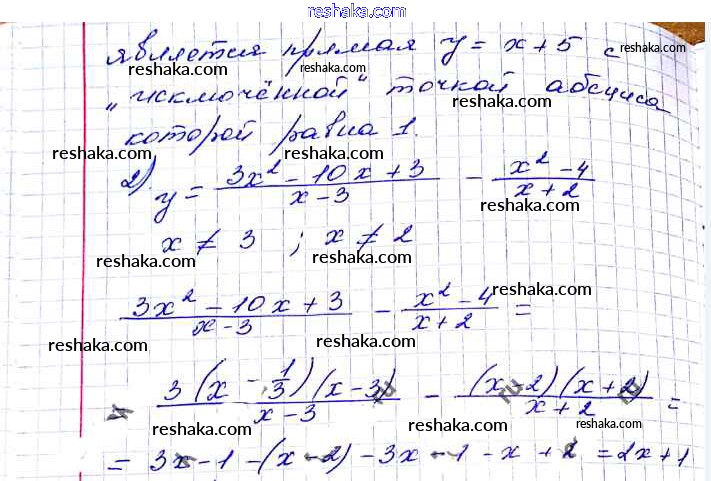 reshaka.com
является прямая y = x + 5 с
reshaka.com reshaka.com
„исключённой" точкой абсциса
reshaka.com reshaka.com
которой равна 1.
reshaka.com reshaka.com
2) y = (3x² - 10x + 3)/(x - 3) - (x² - 4)/(x + 2)
reshaka.com
x ≠ 3 ; x ≠ 2
reshaka.com reshaka.com
(3x² - 10x + 3)/(x - 3) - (x² - 4)/(x + 2) =
reshaka.com
reshaka.com reshaka.com
= (3(x - 1/3)(x - 3))/(x - 3) - ((x - 2)(x + 2))/(x + 2) =
reshaka.com reshaka.com
= 3x - 1 - (x - 2) - 3x - 1 - x + 2 = 2x + 1